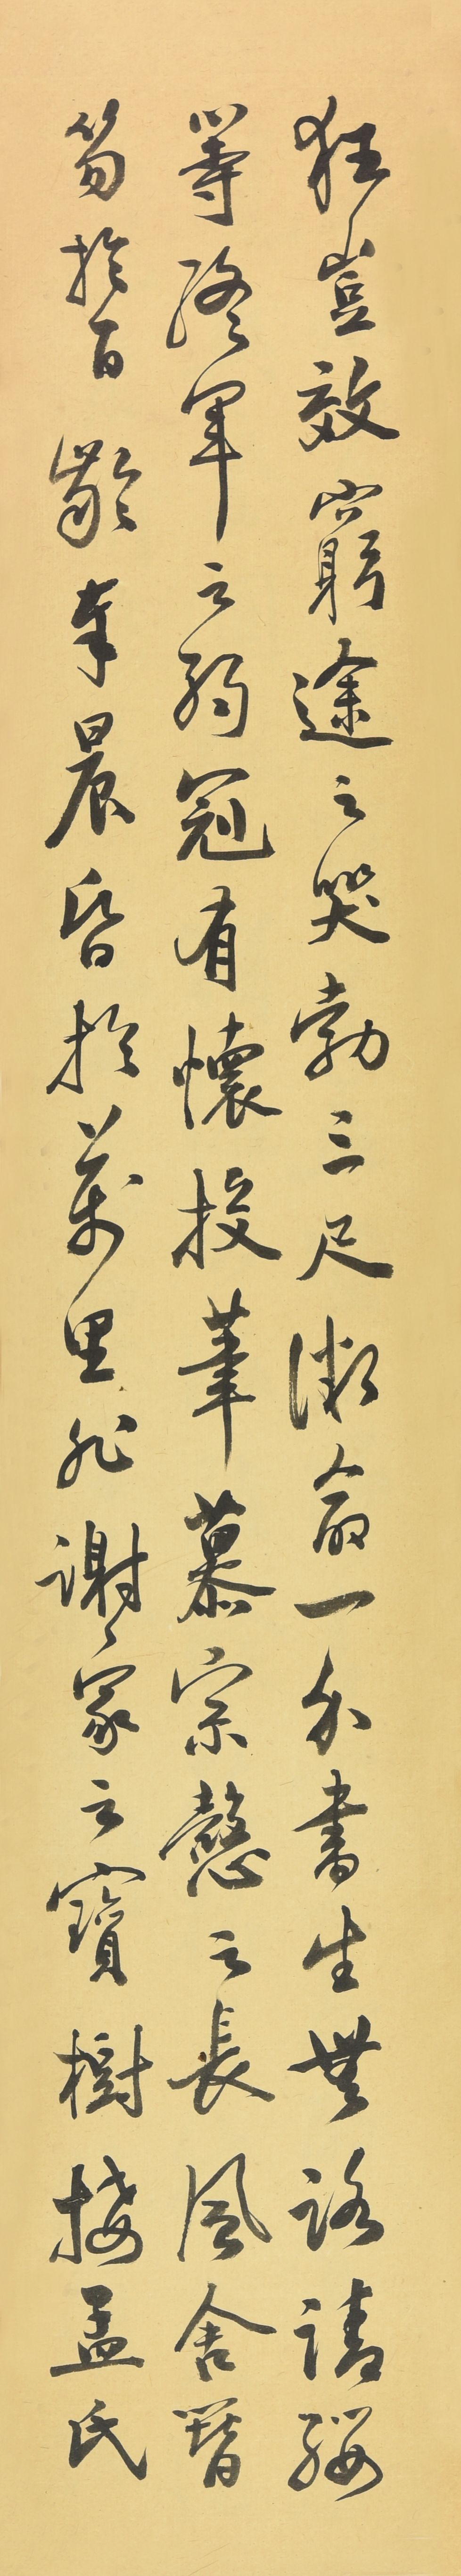 狂豈效窮途之哭勃三尺微命一介書生無路請纓
等終軍之弱冠有懷投筆慕宗愨之長風舍簪
笏於百齡奉晨昏於萬里非謝家之寶樹接孟氏